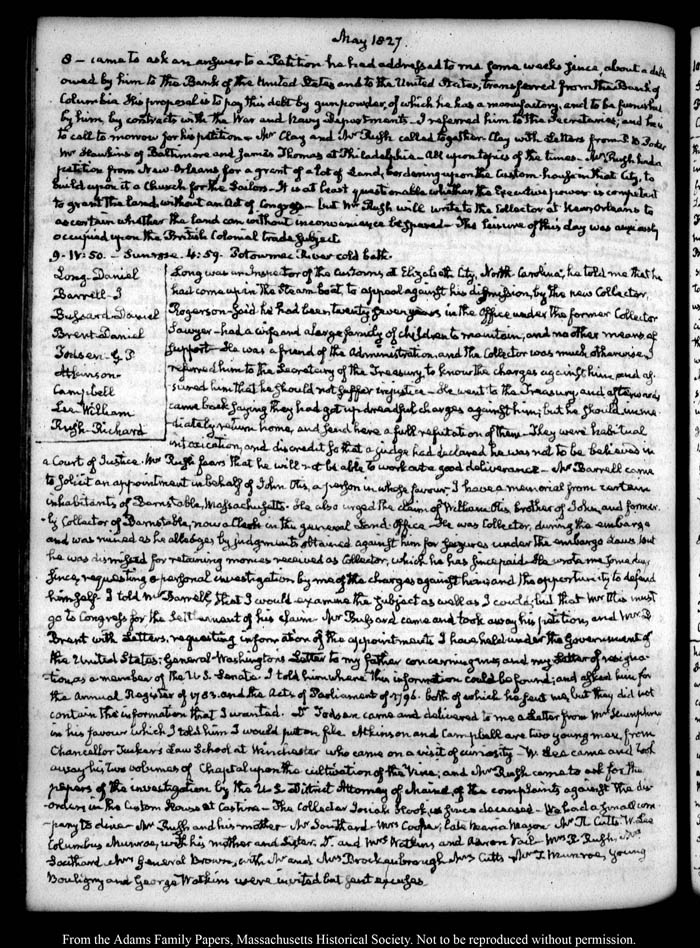 May 1827.
8 – came to ask an answer to a Petition he had addressed to me some weeks since, about a debt
owed by him to the Bank of the United States and to the United States, transferred from the Bank of
Columbia. His proposal is to pay this debt by gunpowder, of which he has a manufactory, and to be furnished
by him, by contracts with the War and Navy Departments – I referred him to the Secretaries; and he is
to call to morrow for his petition – Mr Clay and Mr Rush called together. Clay with Letters from
Mr Hawkins of Baltimore and James Thomas at Philadelphia – All upon topics of the times – Mr Rush had a
petition from New-Orleans for a grant of a lot of Land, bordering upon the Custom-house in that City, to
build upon it a Church for the Sailors – It is at least questionable whether the Executive power is competent
to grant the land, without an Act of Congress – but Mr Rush will write to the Collector at New Orleans to
ascertain whether the land can without inconvenience be spared – The leisure of this day was
occupied upon the British Colonial trade subject.
9. IV: 50. – Sun rose. 4: 59. Potowmac River cold bath.
Long-Daniel
Barrell-J
Bussard-Daniel
Brent-Daniel
Todsen-G. P
Atkinson-
Campbell
Lee William
Rush-Richard
Long was an Inspector of the Customs, at Elizabeth City, North Carolina; he told me that he
had come up in the Steam-boat, to appeal against his dismission, by the new Collector
Rogerson – said he had been twenty seven years in the Office under the former Collector
Sawyer – had a wife and a large family of children to maintain; and no other means of
support – He was a friend of the Administration, and the Collector was much otherwise. I
referred him to the Secretary of the Treasury, to know the charges against him, and as-
sured him that he should not suffer injustice – He went to the Treasury, and afterwards
came back saying they had got up dreadful charges against him; but he should imme
diately return home, and send here a full refutation of them – They were habitual
intoxication, and discredit so that a judge had declared he was not to be believed in
a Court of Justice. Mr Rush fears that he will not be able to work out a good deliverance – Mr Barrell came
to solicit an appointment in behalf of John Otis, a person in whose favour I have a memorial from certain
inhabitants of Barnstable, Massachusetts. He also urged the claim of William Otis, brother of John, and former-
ly Collector of Barnstable; now a Clerk in the general Land-Office – He was Collector, during the embargo
and was ruined as he alledges by judgments obtained against him for seizures under the embargo Laws, but
he was dismissed for retaining monies received as Collector, which he has since paid – He wrote me some days
since, requesting a personal investigation by me of the charges against him; and the opportunity to defend
himself – I told Mr Barrell, that I would examine the subject as well as I could; but that Mr Otis must
go to Congress for the settlement of his claim – Mr Bussard came and took away his petition, and Mr D
Brent with Letters, requesting information of the appointments I have held under the Government of
the United States; General Washington's Letter to my father concerning me; and my Letter of resigna-
tion, as a member of the U.S. Senate. I told him where this information could be found; and asked him for
the Annual Register of 1783. and the Acts of Parliament of 1796. both of which he sent me, but they did not
contain the information that I wanted. Dr Todsen came and delivered to me a Letter from
in his favour which I told him I would put on file. Atkinson and Campbell are two young men, from
Chancellor Tucker's Law School at Winchester who came on a visit of curiosity – W. Lee came and took
away his two volumes of Chaptal upon the cultivation of the Vine; and Mr Rush came to ask for the
papers of the investigation by the U.S. District Attorney of Maine, of the complaints against the dis-
orders in the Custom House at Castine – The Collector Josiah Hook, is since deceased – We had a small com
pany to dine – Mr Rush and his mother – Mr Southard – Mrs Cooper, late Maria Mason. Mr R. Cutts. W. Lee
Columbus Munroe, with his mother and Sister. Dr and Mrs Watkins and Aaron Vail – Mrs R. Rush, Mrs
Southard Mrs General Brown, with Mr and Mrs Brockenbrough Mrs Cutts – Mr T. Munroe, young
Bouligny and George Watkins were invited but sent excuses.
From the Adams Family Papers, Massachusetts Historical Society. Not to be reproduced without permission.